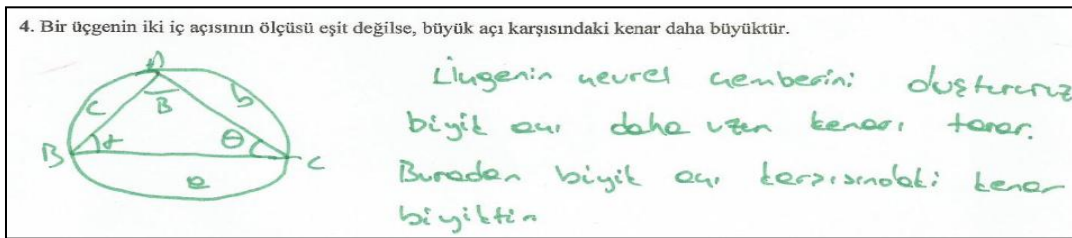 4. Bir üçgenin iki iç açısının ölçüsü eşit değilse, büyük açı karşısındaki kenar daha büyüktür.
A
c
b
B
α
θ
B
C
a
Üçgenin çevrel çemberini oluştururuz
büyük açı daha uzun kenarı tarar.
Buradan büyük açı karşısındaki kenar
büyüktür